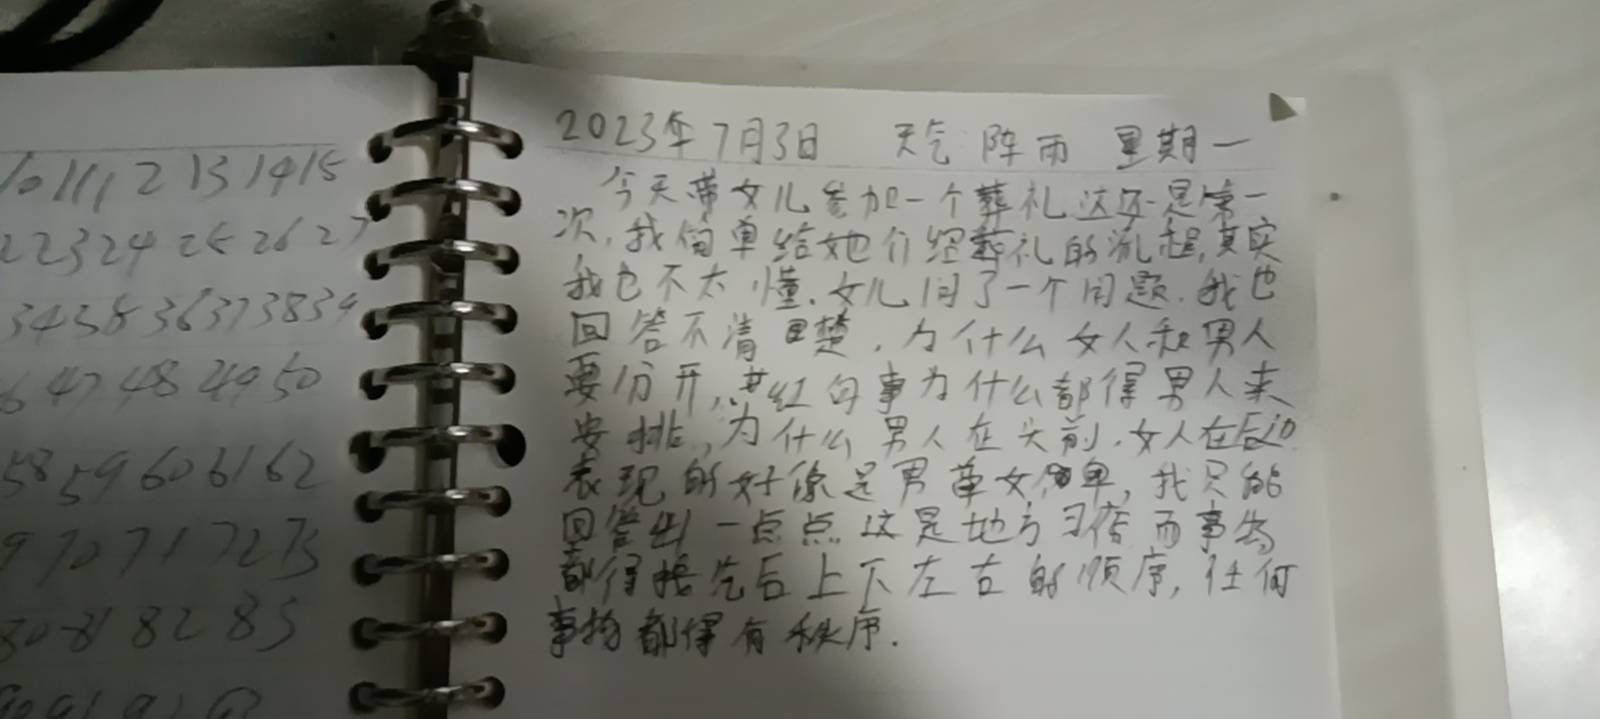 10 11 12 13 14 15
22 23 24 25 26 27
34 35 36 37 38 39
6 47 48 49 50
58 59 60 61 62
9 70 71 72 73
80 81 82 83
90 91 92 93
2023年7月3日 天气 阵雨 星期一
今天带女儿参加一个葬礼这还是第一
次,我简单给她介绍葬礼的流程,其实
我也不太懂.女儿问了一个问题.我也
回答不清楚,为什么女人和男人
要分开,红白事为什么都得男人来
安排,为什么男人在头前.女人在后边.
表现的好像是男尊女卑,我只能
回答出一点点这是地方习俗而事物
都得按先后上下左右的顺序,任何
事物都得有秩序.